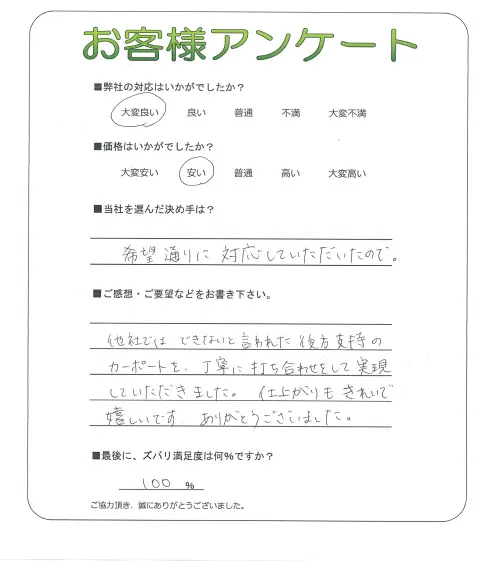 お客様アンケート
■弊社の対応はいかがでしたか?
大変良い 良い 普通 不満 大変不満
■価格はいかがでしたか?
大変安い 安い 普通 高い 大変高い
■当社を選んだ決め手は?
希望通りに対応していただいたので。
■ご感想・ご要望などをお書き下さい。
他社では できないと言われた 後方支持の
カーポートを、丁寧に打ち合わせをして実現
していただきました。 仕上がりも きれいで
嬉しいです。ありがとうございました。
■最後に、ズバリ満足度は何%ですか?
100 %
ご協力頂き、誠にありがとうございました。